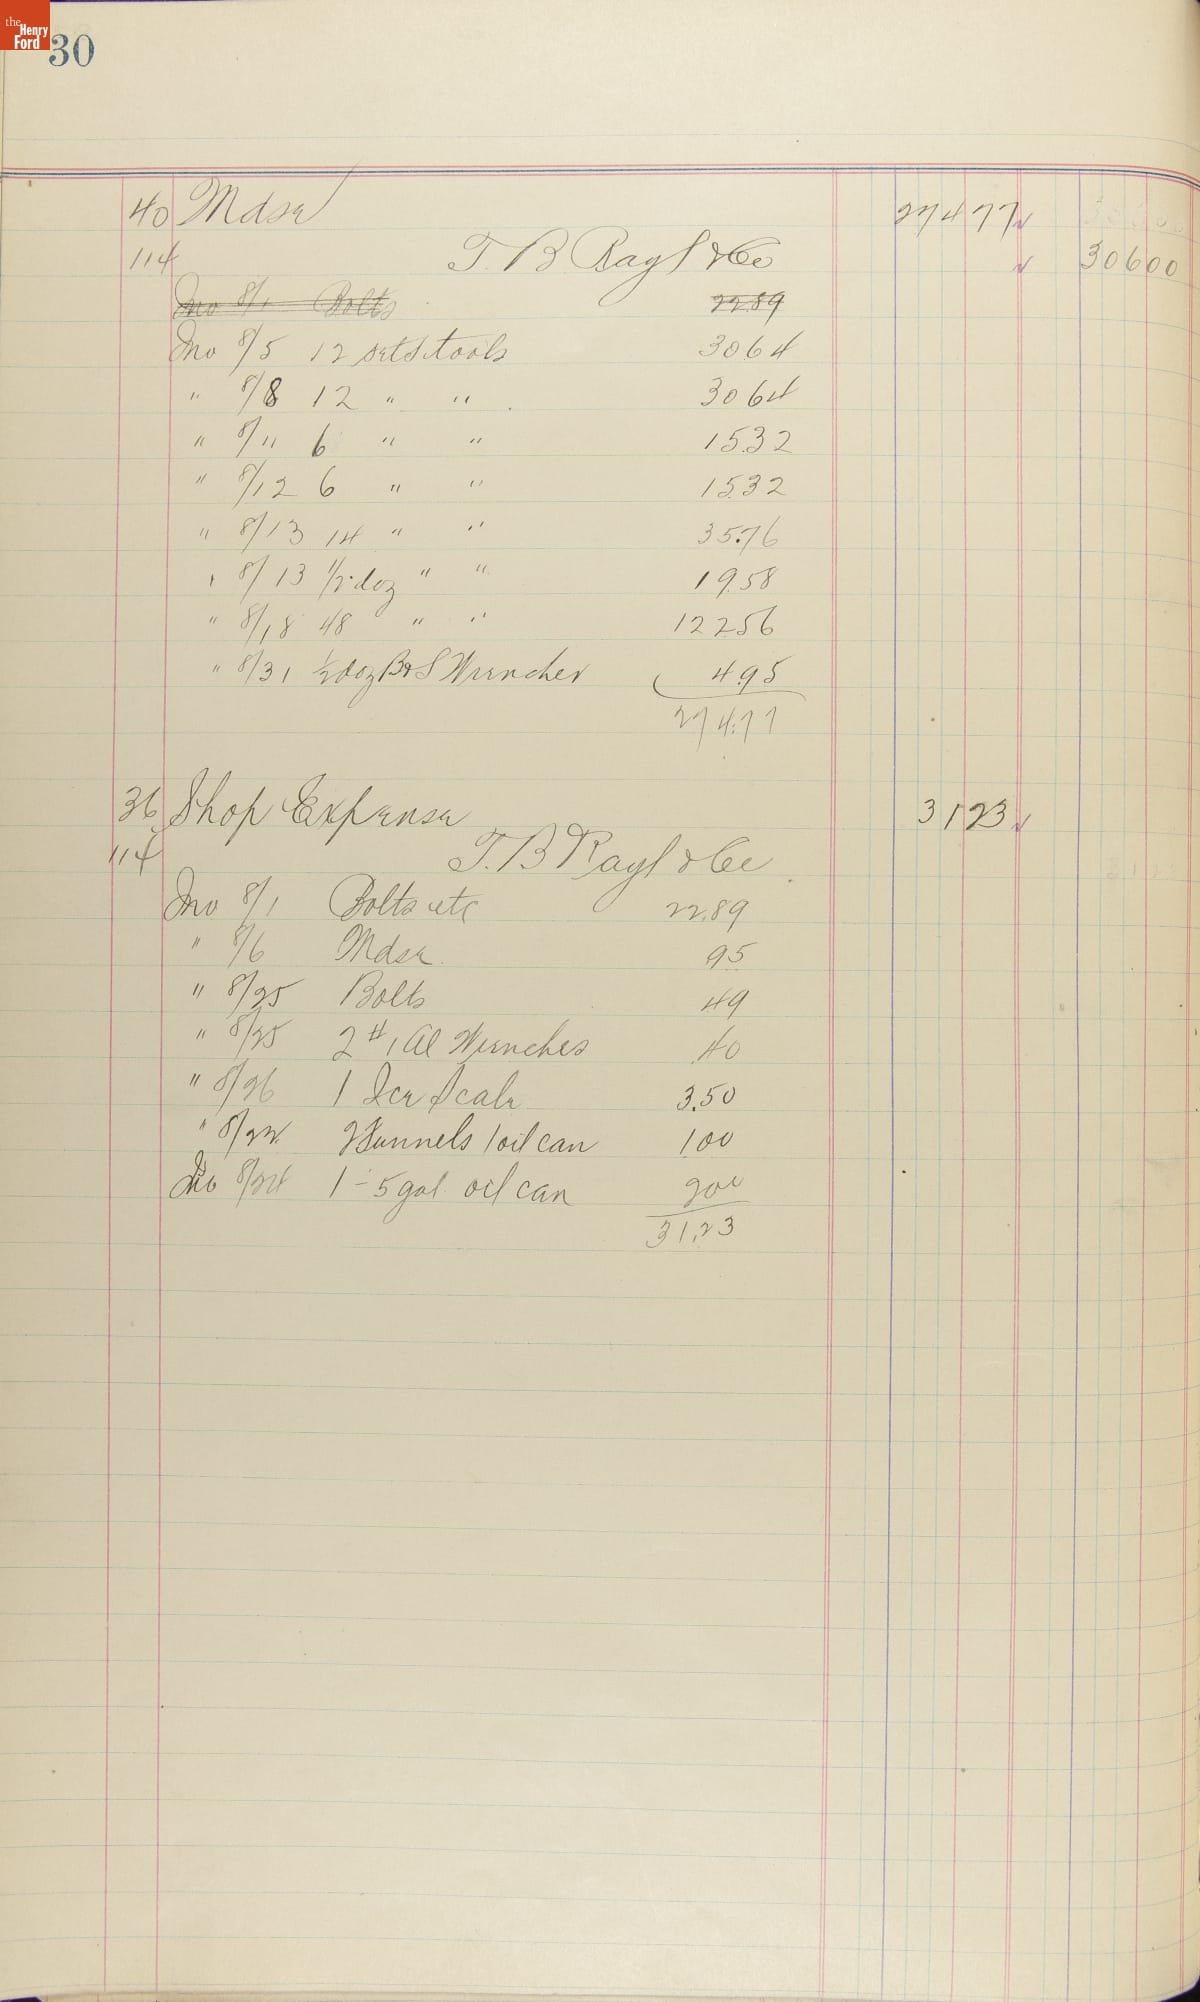 the Henry Ford
30
40 Mdse 274 77
114 T. B Rayl & Co 306 00
Inv 8/1 Bolts 22.89
Inv 8/5 12 sets tools 30 64
" 8/8 12 " " 30 64
" 8/11 6 " " 15.32
" 8/12 6 " " 15.32
" 8/13 14 " " 35.76
" 8/13 1/2 doz " " 19.58
" 8/18 48 " " 122.56
" 8/31 1/2 doz B&S Wrenches 4.95
274.77
36 Shop Expense 31 23
114 T. B Rayl & Co
Inv 8/1 Bolts etc 22.89
" 8/6 Mdse 95
" 8/25 Bolts 49
" 8/25 2 #1 Al Wrenches .40
" 8/26 1 Ice Scale 3.50
" 8/22 2 Funnels 1 oil can 1.00
Inv 8/24 1 - 5 gal oil can 200
31.23